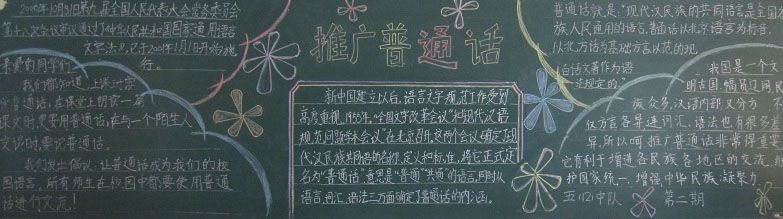 2000年10月31日第九届全国人民代表大会常务委员会
第十八次会议审议通过了《中华人民共和国国家通用语言
文字法》,已于2001年1月1日开始施
行。
亲爱的同学们:
我们都知道,上课时应
普通话,在课堂上朗读一篇
课文时,更要用普通话,在与一个陌生人
交谈时,要说普通话。
我们发出倡议,让普通话成为我们的校
园语言,所有师生在校园中都要使用普通
话进行交流!
推广普通话
新中国建立以后,语言文字规范工作受到
高度重视,1955年,"全国文字改革会议"和"现代汉语
规范问题学术会议"在北京召开。这两个会议确定了现
代汉民族共同语的名称、定义和标准,将它正式定
名为"普通话",意思是"普通""共通"的语言,同时从
语音、词汇、语法三方面确定了普通话的内涵。
普通话就是:"现代汉民族的共同语言是全国各
族人民通用的语言。普通话以北京语言为标音,
以北方话为基础方言,以典范的现
代白话文著作为语
法规定的。"
我国是一个文
明古国,幅员辽阔,民
族众多,汉语内部又分方
仅方言各异,连词汇、语法也有很多差
异,所以,推广普通话非常得重要,
它有利于增进各民族各地区的交流,
护国家统一,增强中华民族凝聚力。
五(2)中队 第二期